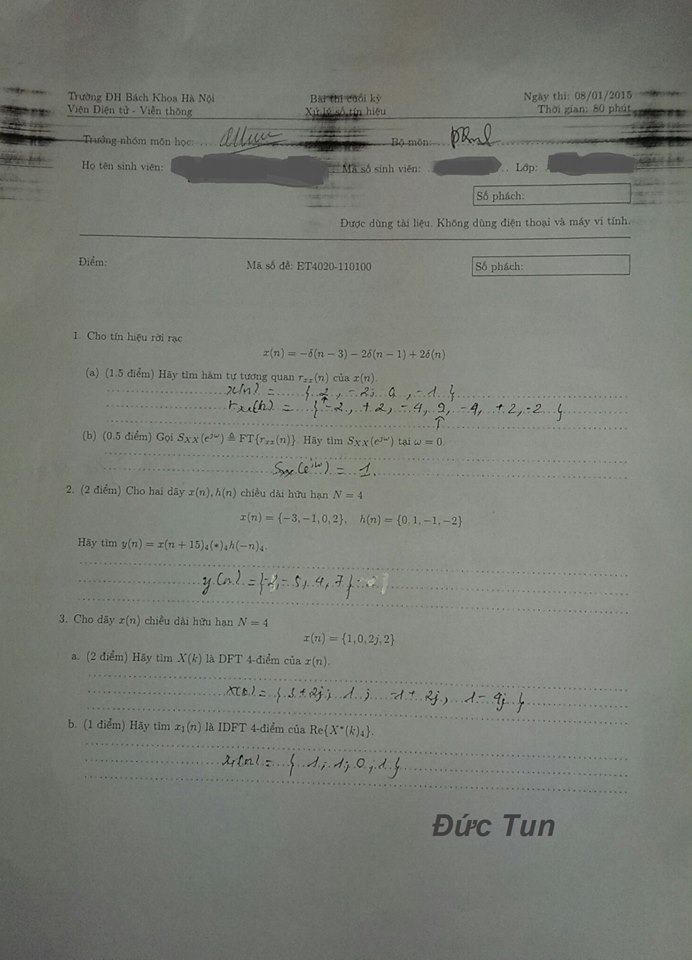 Trường ĐH Bách Khoa Hà Nội
Viện Điện tử - Viễn thông
Bài thi cuối kỳ
Xử lý số tín hiệu
Ngày thi: 08/01/2015
Thời gian: 80 phút
Trưởng nhóm môn học: Bộ môn:
Họ tên sinh viên: Mã số sinh viên: Lớp:
Số phách:
Được dùng tài liệu. Không dùng điện thoại và máy vi tính.
Điểm: Mã số đề: ET4020-110100 Số phách:
1. Cho tín hiệu rời rạc
x(n) = −δ(n − 3) − 2δ(n − 1) + 2δ(n)
(a) (1.5 điểm) Hãy tìm hàm tự tương quan rxx(n) của x(n).
x(n) = { 2, -2, 0, -1 }
rxx(n) = { -2, +2, -4, 9, -4, +2, -2 }
(b) (0.5 điểm) Gọi SXX(e^jω) ≜ FT{rxx(n)}. Hãy tìm SXX(e^jω) tại ω = 0.
Sxx(e^jω) = 1.
2. (2 điểm) Cho hai dãy x(n), h(n) chiều dài hữu hạn N = 4
x(n) = {−3, −1, 0, 2}, h(n) = {0, 1, −1, −2}
Hãy tìm y(n) = x(n + 15)4(*)4h(−n)4.
y(n) = {-2, -5, 4, 7}
3. Cho dãy x(n) chiều dài hữu hạn N = 4
x(n) = {1, 0, 2j, 2}
a. (2 điểm) Hãy tìm X(k) là DFT 4-điểm của x(n).
X(k) = { 3+2j, 1, -1+2j, 1-4j }
b. (1 điểm) Hãy tìm x1(n) là IDFT 4-điểm của Re{X*(k)4}.
x1(n) = { 1, 1, 0, 1 }
Đức Tun